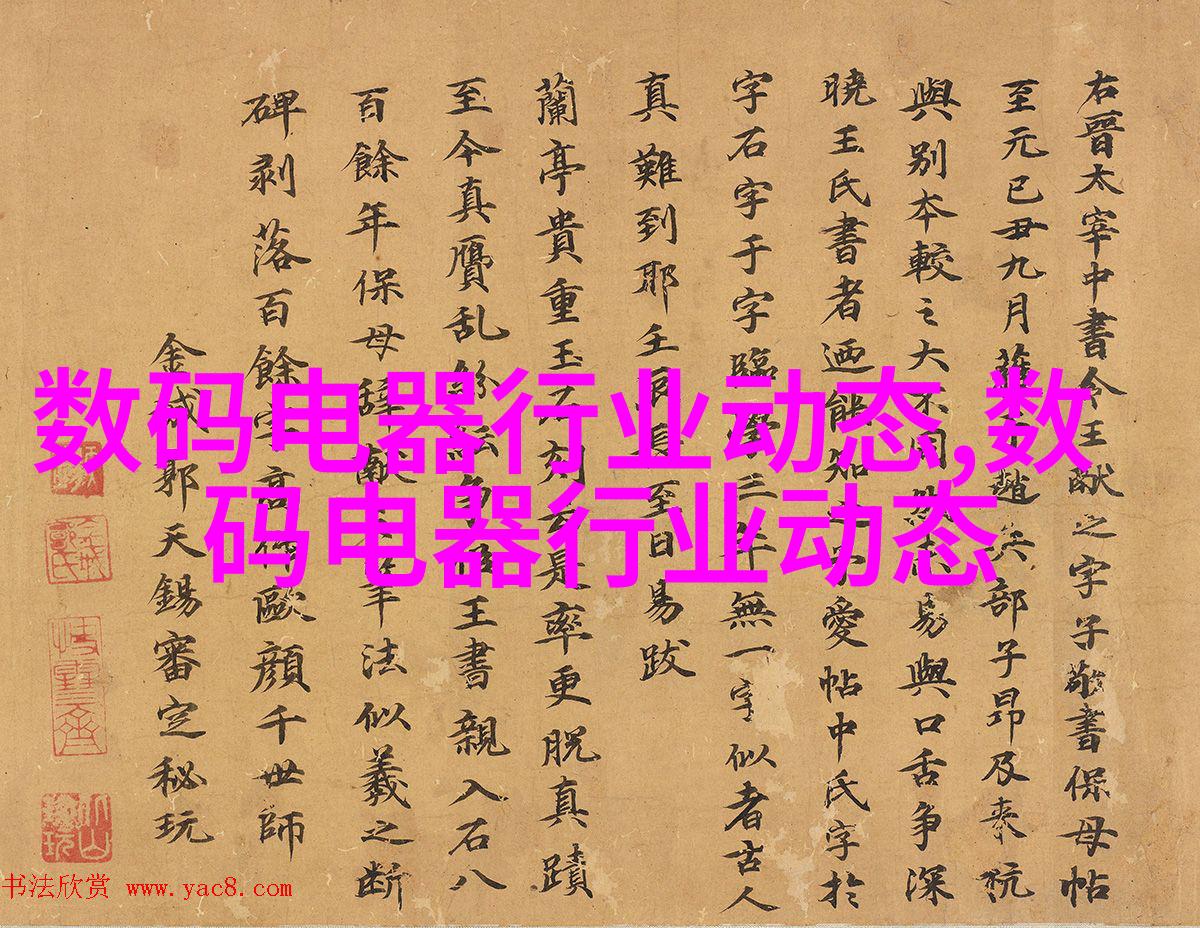 右晉太宰中書令王獻之字子敬書保母帖
至元己丑九月
趙兵部子昂及來杭
與別本較之大不同
易與口舌爭深
曉王氏書者迺能知
字愛帖中氏字於
字石字于字臨
三年無一字似者古人
真難到耶
至日易跋
蘭亭貴重玉石刻云是率更脫真蹟
至今真贗乱紛紜
王書親入石八
百餘年保母辭
年法似羲之斷
碑剥落百餘字
歐顔千世師
金城郭天錫審定秘玩
数码电器行业动态,数
码电器行业动态
书法欣赏 www.yac8.com